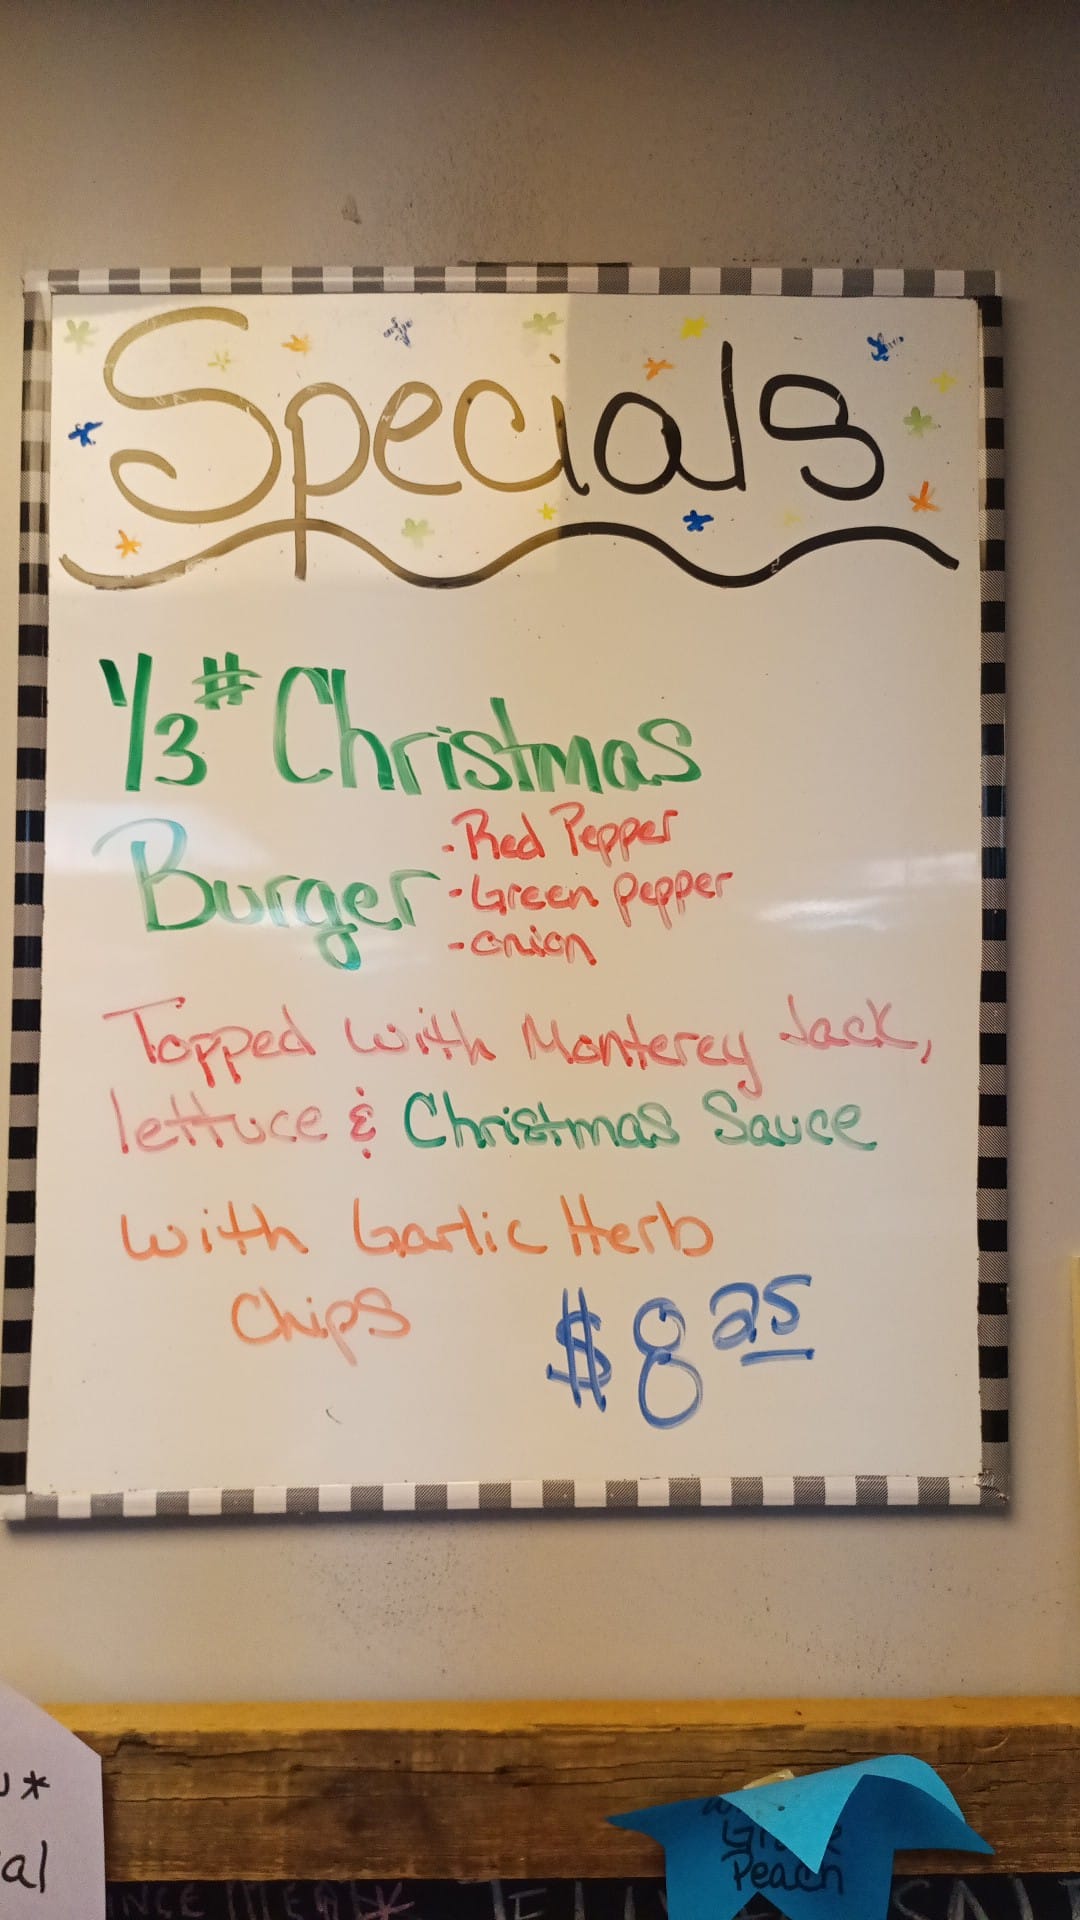 Specials
1/3# Christmas
Burger
- Red Pepper
- Green pepper
- onion
Topped with Monterey Jack,
lettuce & Christmas Sauce
with Garlic Herb
Chips
$8 25
*
al
Peach